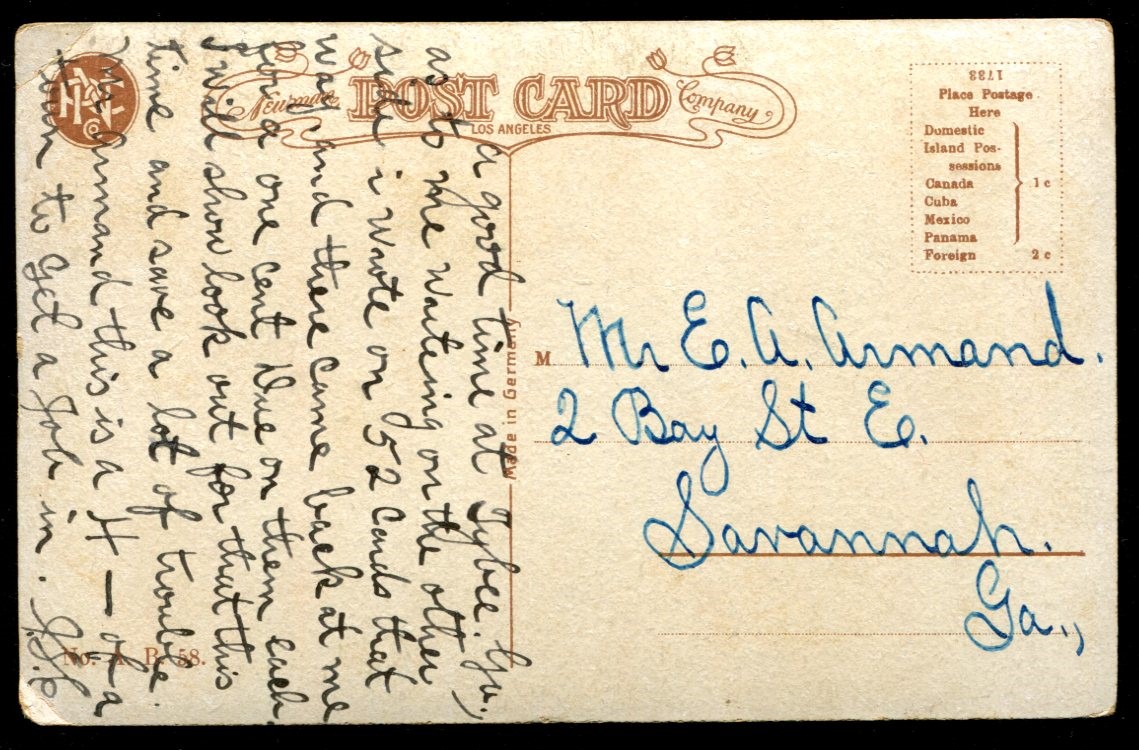 Neuman
POST CARD
Company
LOS ANGELES
1738
Place Postage
Here
Domestic
Island Pos-
sessions
Canada
Cuba
Mexico
Panama
1c
Foreign 2c
Made in Germany
M
Mr E. A. Armand.
2 Bay St E.
Savannah.
Ga.,
a good time at Tybee. Ga.,
as to me Waiteing on the other
side i Wrote on 52 Cards that
way and there came back at me
for a one cent Due on them each.
I will show look out for that this
time and save a lot of trouble.
Mr Armand this is a H — of a
town to get a Job in.
No. A. B. 58.